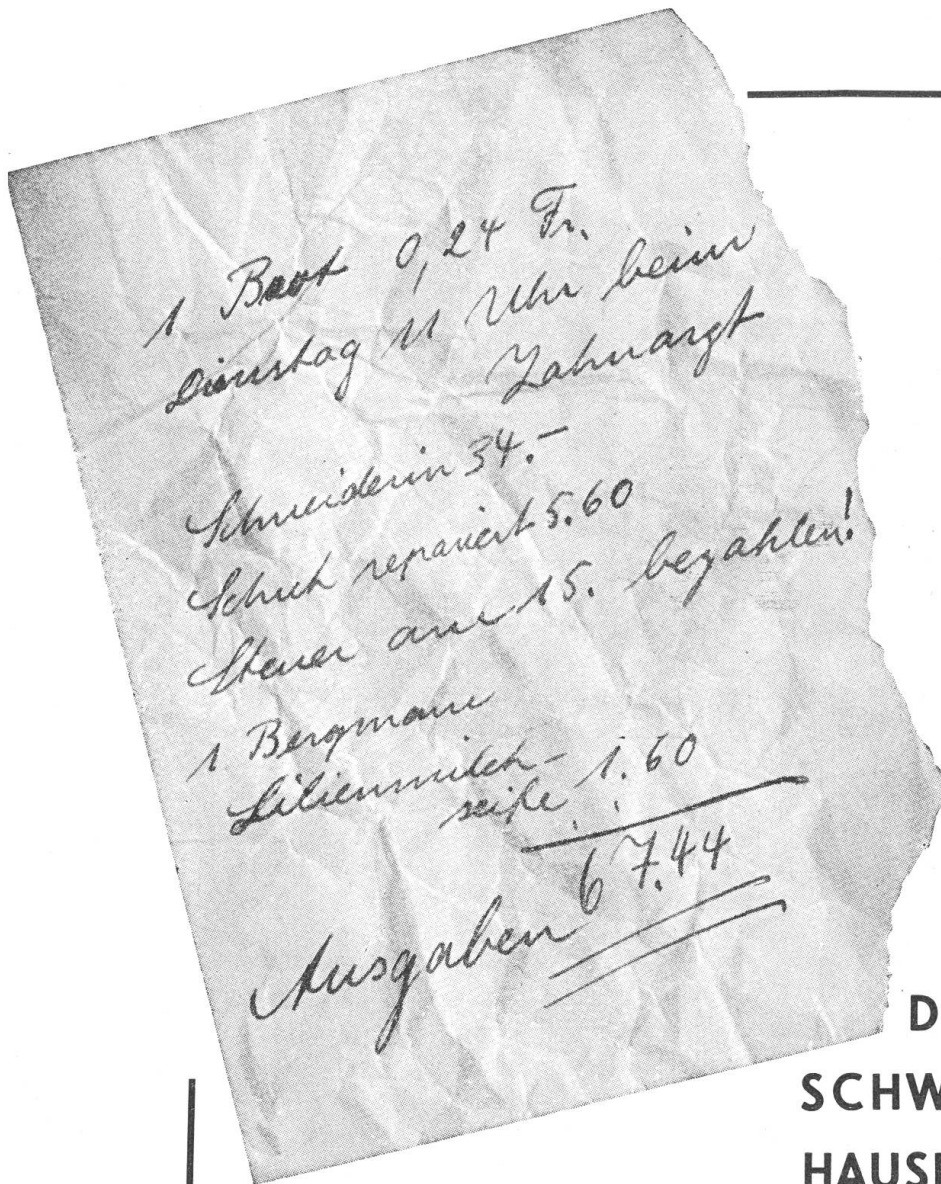 1 Brot 0,24 Fr.
Dienstag 11 Uhr beim
Zahnarzt
Schneiderin 34.–
Schuh repariert 5.60
Steuer am 15. bezahlen!
1 Bergmann
Lilienmilch–
seife 1.60
67.44
Ausgaben
D
SCHW
HAUSE